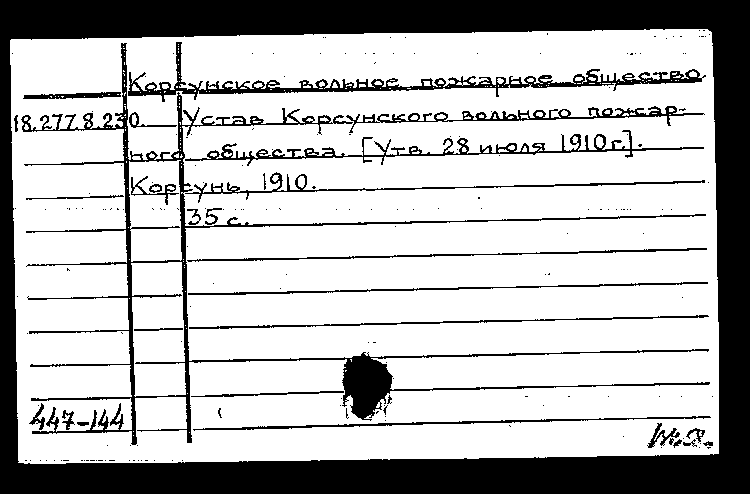 Корсунское вольное пожарное общество
18.277.8.230. Устав Корсунского вольного пожар-
ного общества. [Утв. 28 июля 1910 г.].
Корсунь, 1910.
35 с.
447-144